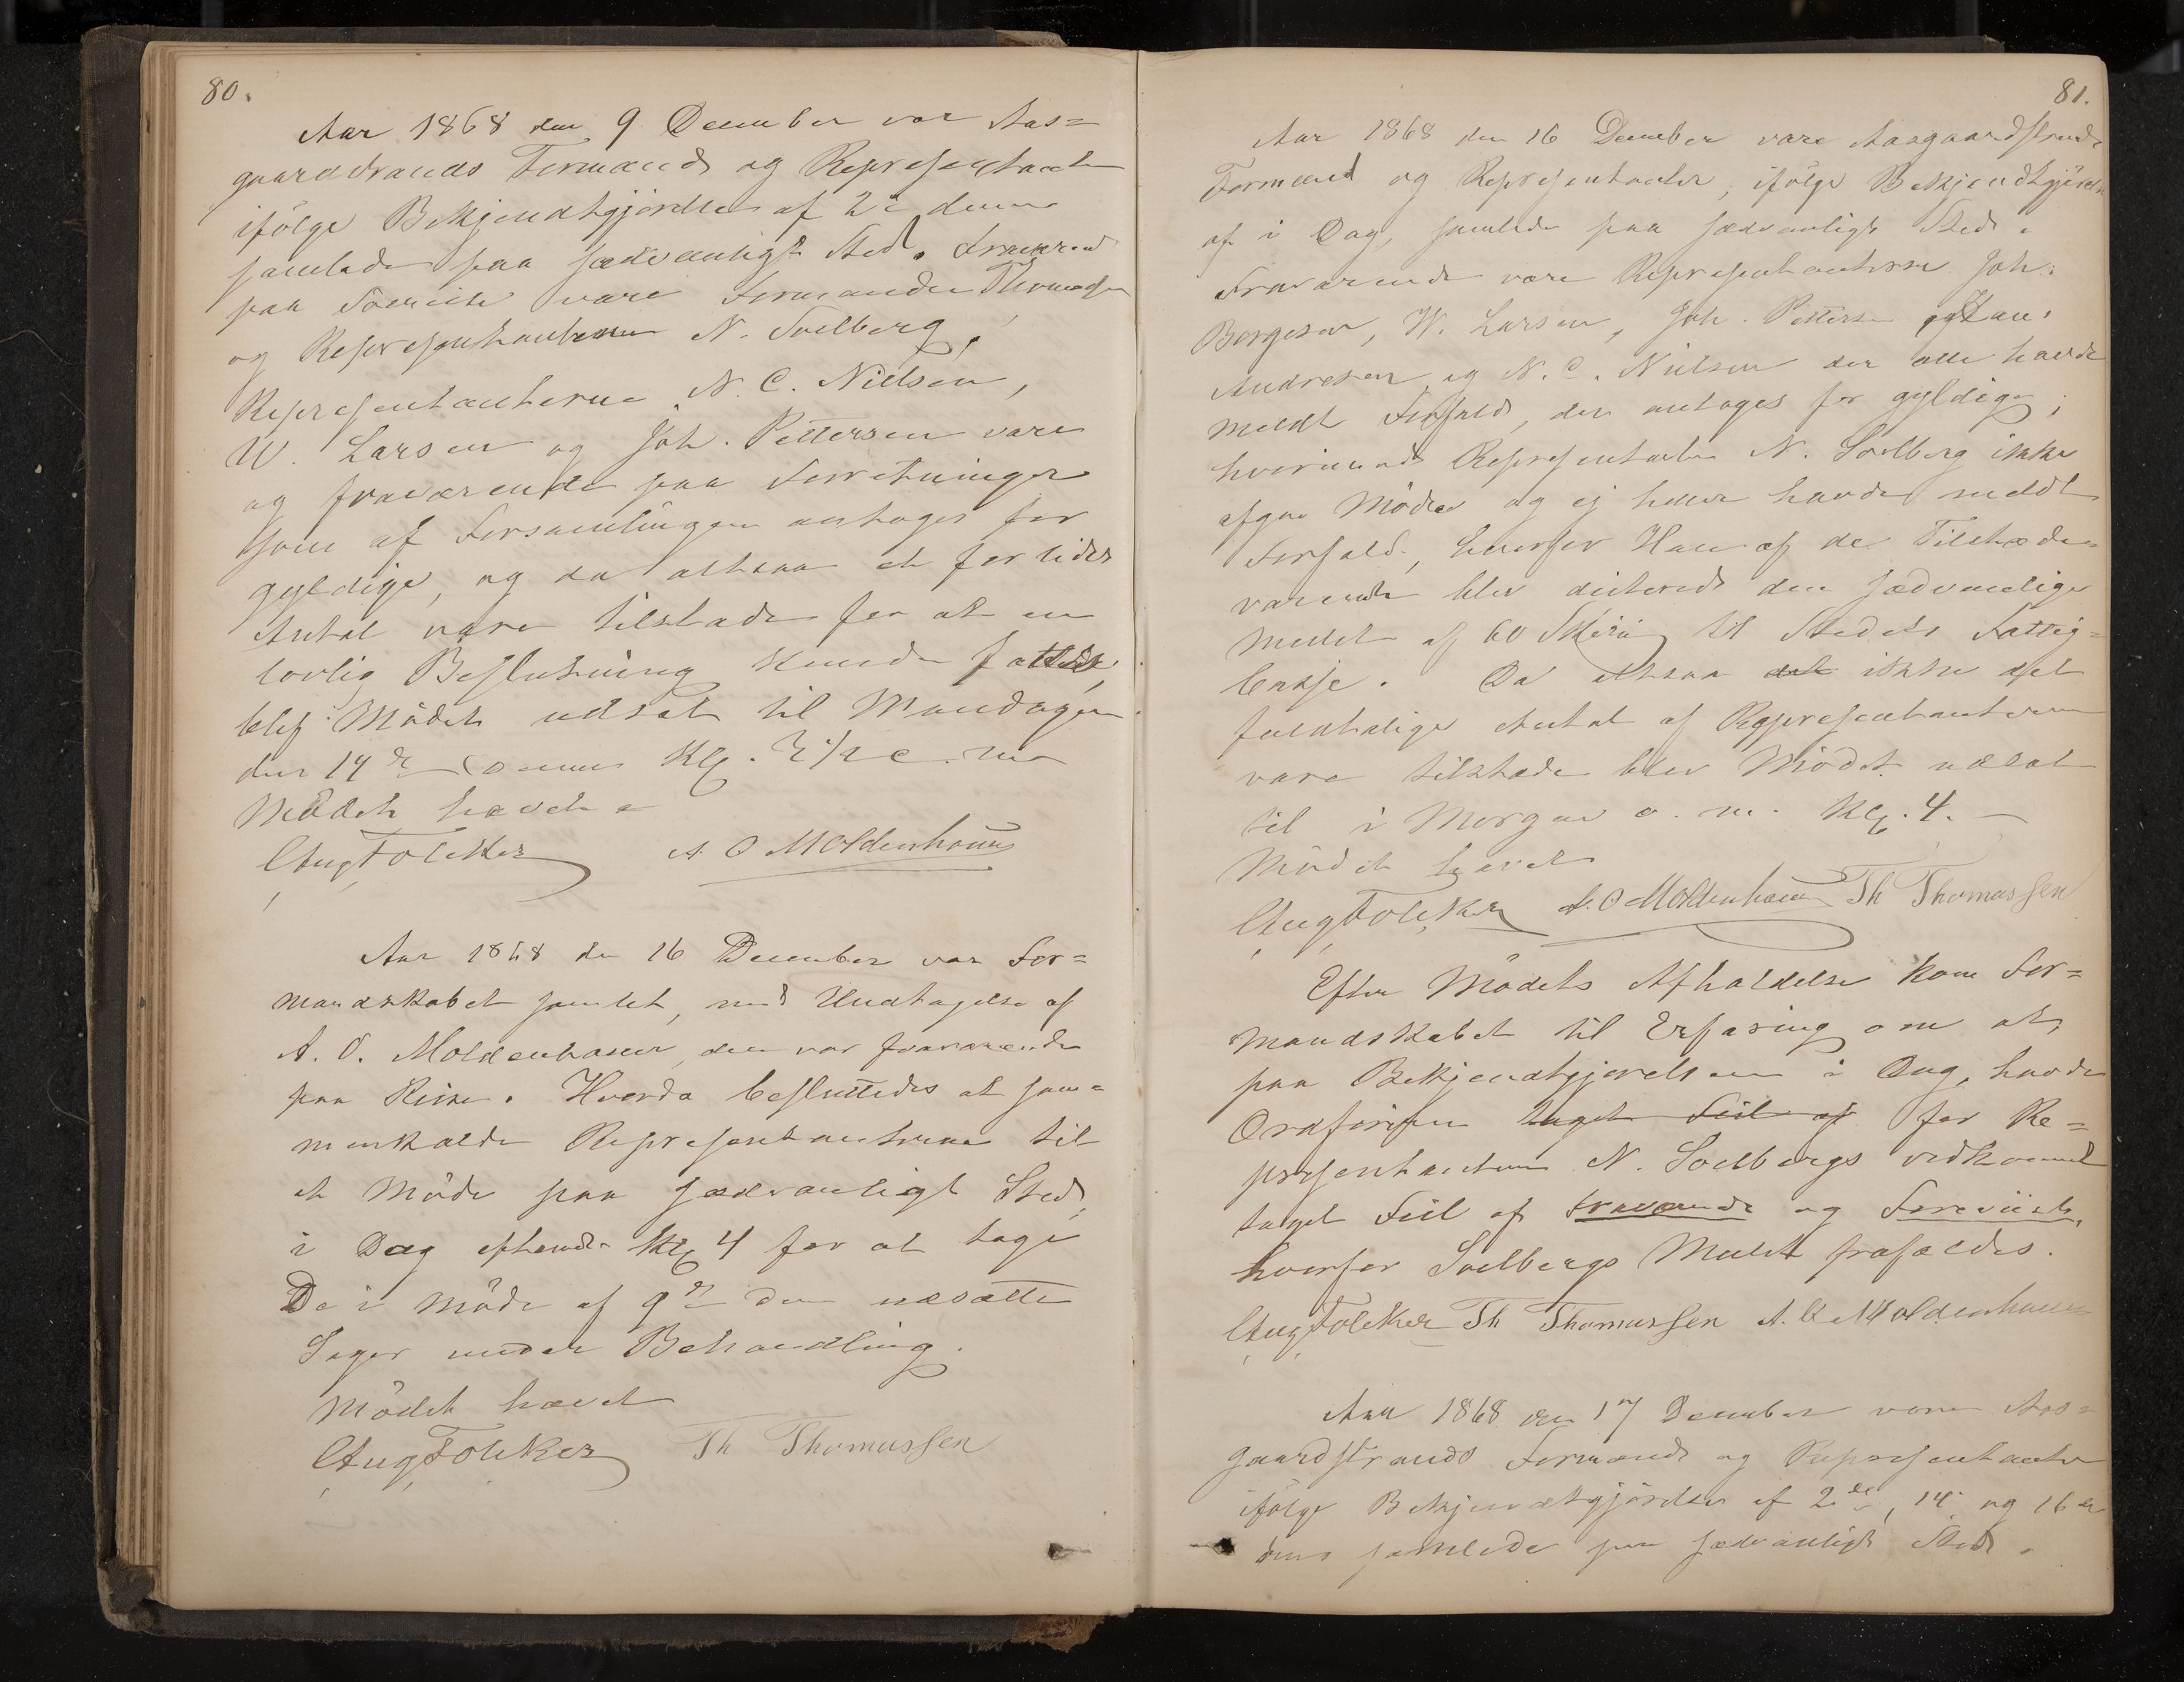 80.
Aar 1868 den 9 December var Aas=
gaardstrands Formænd og Repræsentanter
ifölge Bekjendtgjörelse af 2de dennes
samlede paa sædvanligt Sted. Fraværende
paa vare Formanden Thomassen
og Repræsentanten N. Soelberg,
Repræsentanterne N. C. Nielsen,
W. Larsen og Joh. Pettersen vare
og fraværende paa Forretninger
som af Forsamlingen antoges for
gyldige, og da altsaa et for lidet
Antal vare tilstæde for at en
lovlig Beslutning kunde fattes,
blef Mödet udsat til Mandagen
den 14de Kl.
Mödet hævet
Aug Folcker A. O Moldenhauer
Aar 1868 den 16 December var For=
mandskabet samlet, med Undtagelse af
A. O. Moldenhauer, der var fraværende
paa Reise. Hvorda besluttedes at sam=
menkalde Repræsentanterne til
et Möde paa sædvanligt Sted,
i Dag eftermd. Kl 4 for at tage
De i Möde af 9de dns udsatte
Sager under Behandling.
Mödet hævet
Aug Folcker Th Thomassen
81.
Aar 1868 den 16 December vare Aasgaardstrands
Formænd og Repræsentanter, ifölge Bekjendtgjörelse
af i Dag, samlede paa sædvanligt Sted.
Fraværende vare Repræsentanterne Joh.
Borgesen, W. Larsen, Joh. Pettersen og Hans
Andresen og N. C. Nielsen der alle havde
meldt Forfald, der antoges for gyldige;
hvorimod Repræsentanten N. Soelberg ikke
afgav Möde og ej heller havde meldt
Forfald, hvorfor Han af de Tilstæde=
værende blev dicteret den sædvanlige
Mulct af 60 Skill til Stedets Fattig=
kasse. Da altsaa det ikke det
fuldtalige Antal af Repræsentanterne
vare tilstæde blev Mödet udsat
til i Morgen e. m. Kl. 4.
Mödet hævet
Aug Folcker A. O Moldenhauer Th Thomassen
Efter Mödets Afholdelse kom For=
mandskabet til Erfaring om at,
paa Bekjendtgjörelsen i Dag, havde
Ordföreren taget Feil af for Re=
præsentanten N. Soelbergs vedkommende
taget Feil af fraværende og Foreviist,
hvorfor Soelbergs Mulct frafaldes.
Aug Folcker Th Thomassen A. O Moldenhauer
Aar 1868 den 17 December vare Aas=
gaardstrands Formænd og Repræsentanter
ifölge Bekjendtgjörelser af 2de, 14. og 16de
dns samlede paa sædvanligt Sted.